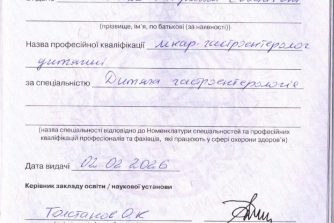 (прізвище, ім'я, по батькові (за наявності))
Назва професійної кваліфікації лікар-гастроентеролог
дитячий
за спеціальністю Дитяча гастроентерологія
(назва спеціальності відповідно до Номенклатури спеціальностей та професійних
кваліфікацій професіоналів та фахівців, які працюють у сфері охорони здоров'я)
Дата видачі 02 02 2026
Керівник закладу освіти / наукової установи
Толстанов О.К